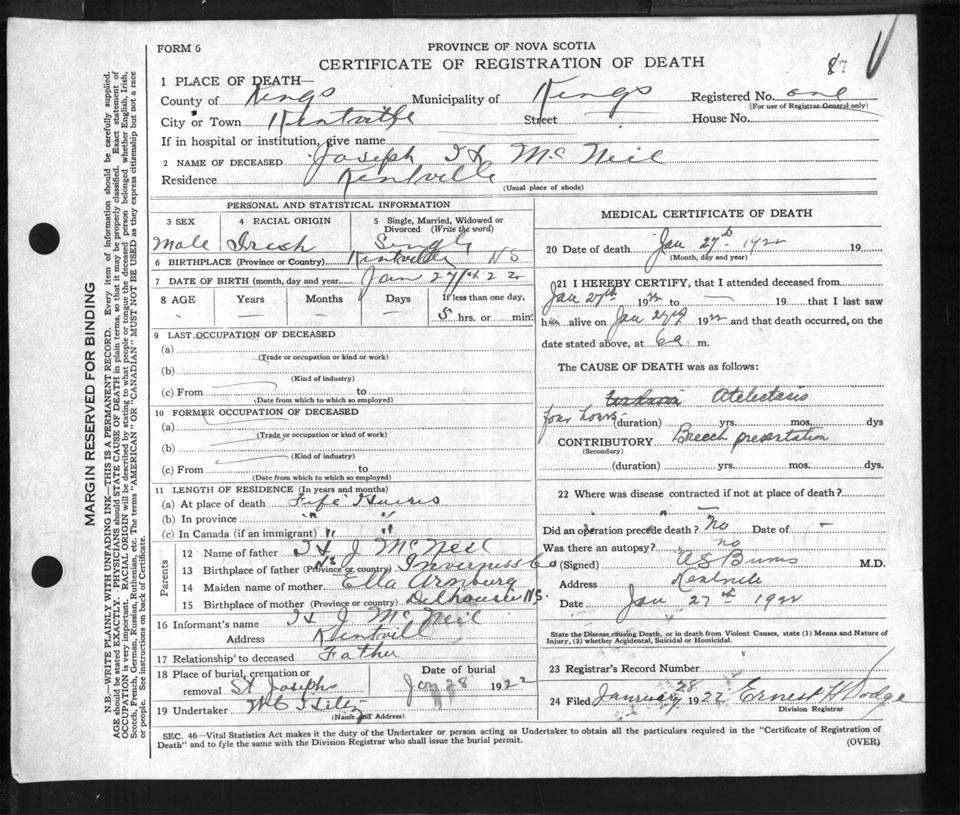 FORM 6
PROVINCE OF NOVA SCOTIA
CERTIFICATE OF REGISTRATION OF DEATH
87
1 PLACE OF DEATH—
County of Kings Municipality of Kings Registered No. one
(For use of Registrar General only)
City or Town Kentville Street House No.
If in hospital or institution, give name
2 NAME OF DECEASED Joseph McNeil
Residence Kentville
(Usual place of abode)
PERSONAL AND STATISTICAL INFORMATION
3 SEX Male
4 RACIAL ORIGIN Irish
5 Single, Married, Widowed or Divorced (Write the word) Single
6 BIRTHPLACE (Province or Country) Kentville NS
7 DATE OF BIRTH (month, day and year) Jan 27th 22
8 AGE Years Months Days If less than one day,
— — — 5 hrs. or min.
9 LAST OCCUPATION OF DECEASED
(a)
(Trade or occupation or kind or work)
(b)
(Kind of industry)
(c) From to
(Date from which to which so employed)
10 FORMER OCCUPATION OF DECEASED
(a)
(Trade or occupation or kind of work)
(b)
(Kind of industry)
(c) From to
(Date from which to which so employed)
11 LENGTH OF RESIDENCE (In years and months)
(a) At place of death
(b) In province " "
(c) In Canada (if an immigrant) " "
Parents
12 Name of father J McNeil
13 Birthplace of father (Province or country) NS Inverness Co
14 Maiden name of mother Ella Armburg
15 Birthplace of mother (Province or country) Dalhousie N.S.
16 Informant's name J McNeil
Address Kentvill
17 Relationship to deceased Father
18 Place of burial, cremation or removal St Josephs
Date of burial Jan 28 1922
19 Undertaker
(Name and Address)
MEDICAL CERTIFICATE OF DEATH
20 Date of death Jan 27th 1922 19
(Month, day and year)
21 I HEREBY CERTIFY, that I attended deceased from
Jan 27th 1922 to — 19 that I last saw
h alive on Jan 27th 1922 and that death occurred, on the
date stated above, at 6a. m.
The CAUSE OF DEATH was as follows:
Atelectasis
four hours (duration) yrs. mos. dys
CONTRIBUTORY Breech presentation
(Secondary)
(duration) yrs. mos. dys.
22 Where was disease contracted if not at place of death?
—
Did an operation precede death? No Date of —
Was there an autopsy? no
(Signed) M.D.
Address Kentville
Date Jan 27th 1922
State the Disease causing Death, or in death from Violent Causes, state (1) Means and Nature of
Injury, (2) whether Accidental, Suicidal or Homicidal.
23 Registrar's Record Number
24 Filed January 28 1922 Ernest H Dodge
Division Registrar
SEC. 46—Vital Statistics Act makes it the duty of the Undertaker or person acting as Undertaker to obtain all the particulars required in the "Certificate of Registration of
Death" and to fyle the same with the Division Registrar who shall issue the burial permit.
(OVER)
MARGIN RESERVED FOR BINDING
N.B.—WRITE PLAINLY WITH UNFADING INK—THIS IS A PERMANENT RECORD. Every item of information should be carefully supplied.
AGE should be stated EXACTLY. PHYSICIANS should STATE CAUSE OF DEATH in plain terms, so that it may be properly classified. Exact statement of
OCCUPATION is very important. RACIAL ORIGIN will be described by stating to what people or tongue the deceased person belonged whether English, Irish,
Scotch, French, German, Russian, Ruthenian, etc. The terms "AMERICAN" OR "CANADIAN" MUST NOT BE USED as they express citizenship but not a race
or people. See instructions on back of Certificate.